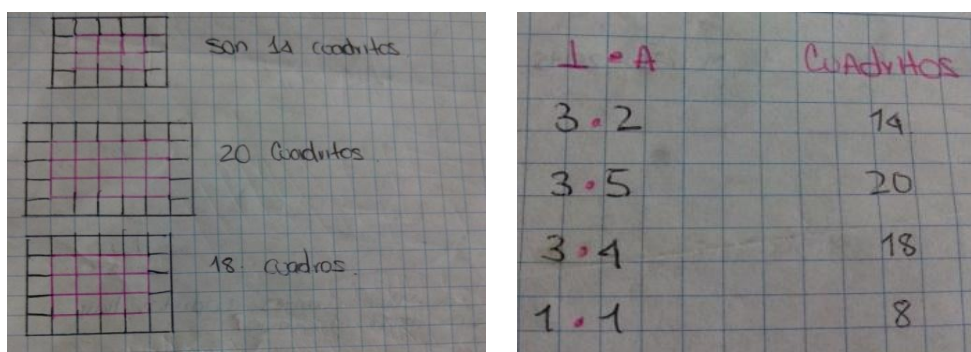 son 14 cuadritos
20 Cuadritos
18. cuadros.
L • A Cuadritos
3 • 2 14
3 • 5 20
3 • 4 18
1 • 1 8